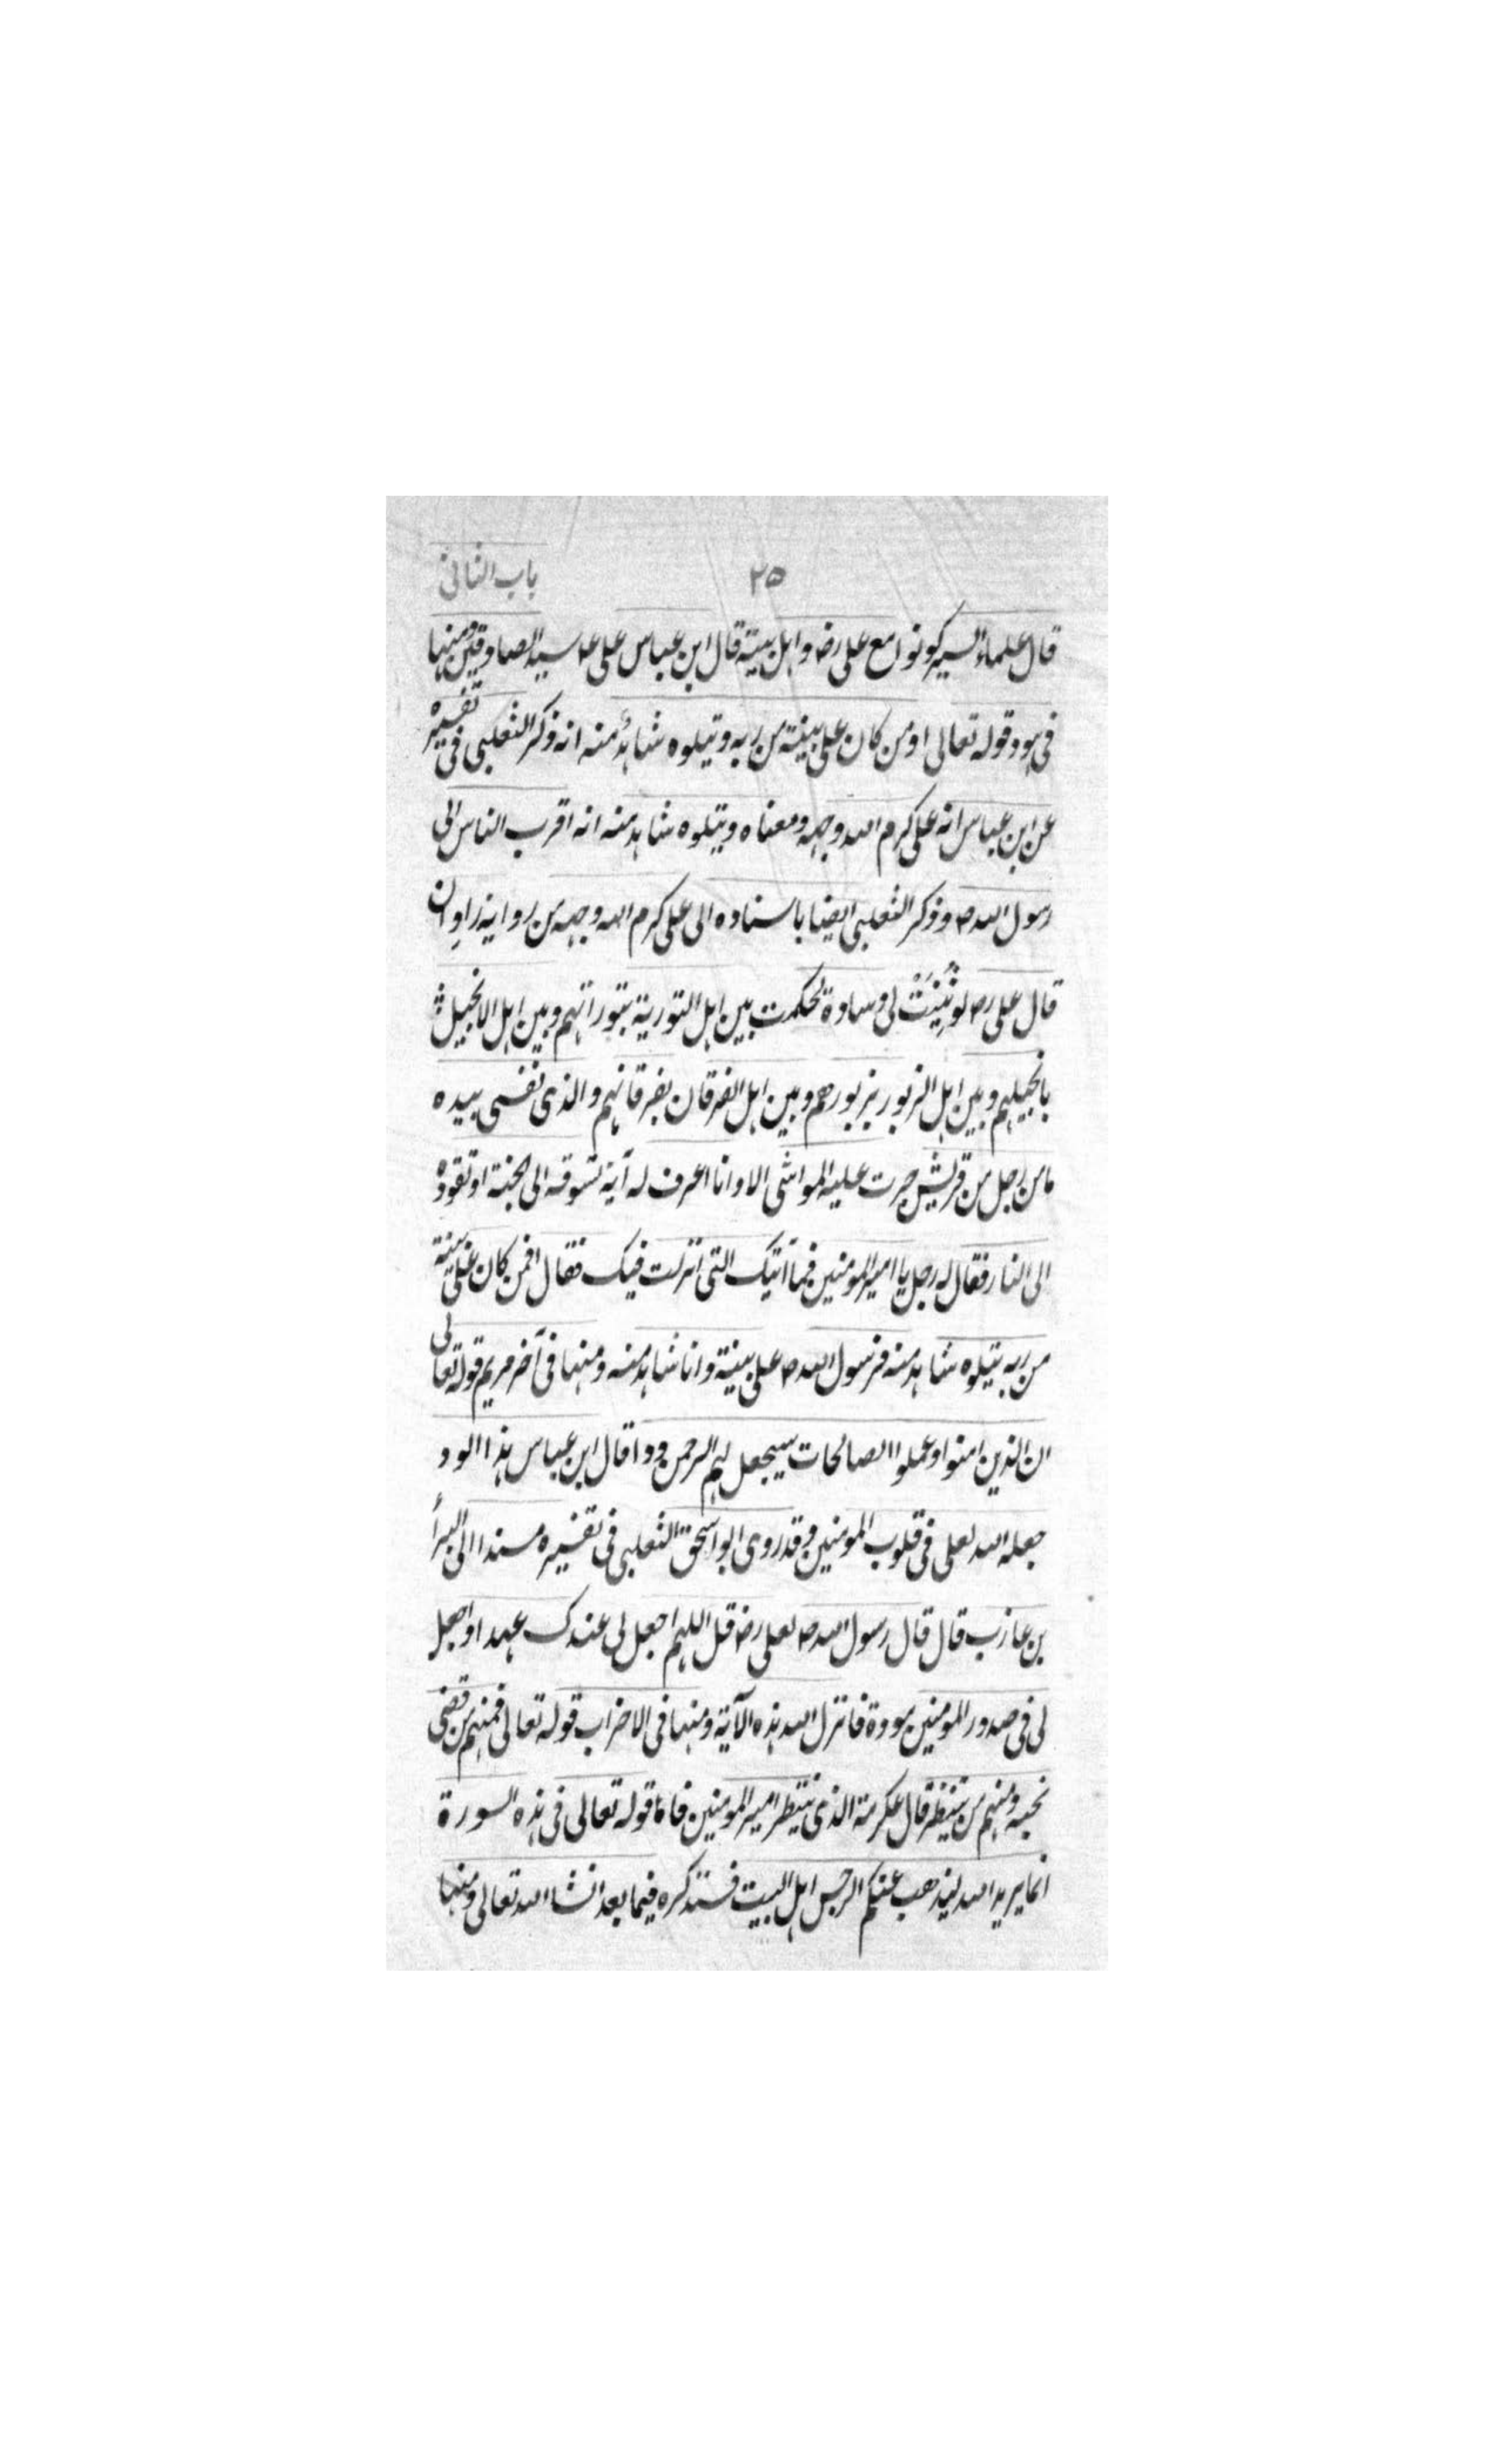 باب الثانی
۲۵
قال علماء السیر کونوا مع علی رضـ واہل بیتہ قال ابن عباس علی عـ سید الصادقین ومنہا
فی ہود قولہ تعالی اومن کان علی بینۃ من ربہ ویتلوہ شاہدٌ منہ انہ ذکر الثعلبی فی تفسیرہ
عن ابن عباس انہ علی کرم اللہ وجہہ ومعناہ ویتلوہ شاہد منہ انہ اقرب الناس الی
رسول اللہ صـ وذکر الثعلبی ایضا باسنادہ الی علی کرم اللہ وجہہ من روایۃ زاذان
قال علی رضـ لو ثُنِیَتْ لی وسادۃ لحکمت بین اہل التوریۃ بتوراتہم وبین اہل الانجیل
بانجیلہم وبین اہل الزبور بزبورهم وبین اہل الفرقان بفرقانہم والذی نفسی بیدہ
مامن رجل من قریش جرت علیہ المواشی الا وانا اعرف لہ آیۃ تسوقہ الی الجنۃ او تقودہ
الی النار فقال لہ رجل یا امیر المومنین فما آیتک التی انزلت فیک فقال افمن کان علی بینۃ
من ربہ یتلوہ شاہد منہ فرسول اللہ صـ علی بینۃ وانا شاہد منہ ومنہا فی آخر مریم قولہ تعالی
ان الذین امنوا وعملوا الصالحات سیجعل لہم الرحمن ودا قال ابن عباس ہذا الود
جعلہ اللہ لعلی فی قلوب المومنین وقد روی ابو اسحق الثعلبی فی تفسیرہ مسندا الی البرأ
بن عازب قال قال رسول اللہ صـ لعلی رضـ قل اللہم اجعل لی عندک عہدا واجعل
لی فی صدور المومنین مودۃ فانزل اللہ ہذہ الآیۃ ومنہا فی الاحزاب قولہ تعالی فمنہم من قضی
نحبہ ومنہم من ینتظر قال عکرمۃ الذی ینتظر امیر المومنین فاما قولہ تعالی فی ہذہ السورۃ
انما یرید اللہ لیذهب عنکم الرجس اہل البیت فسنذکرہ فیما بعد انشاء اللہ تعالی ومنہا